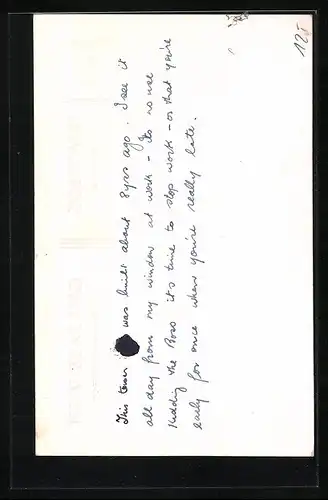 This tower was built about 8yrs ago. I see it
all day from my window at work - its no use
kidding the Boss it's time to stop work - or that you're
early for once when you're really late.
12,-